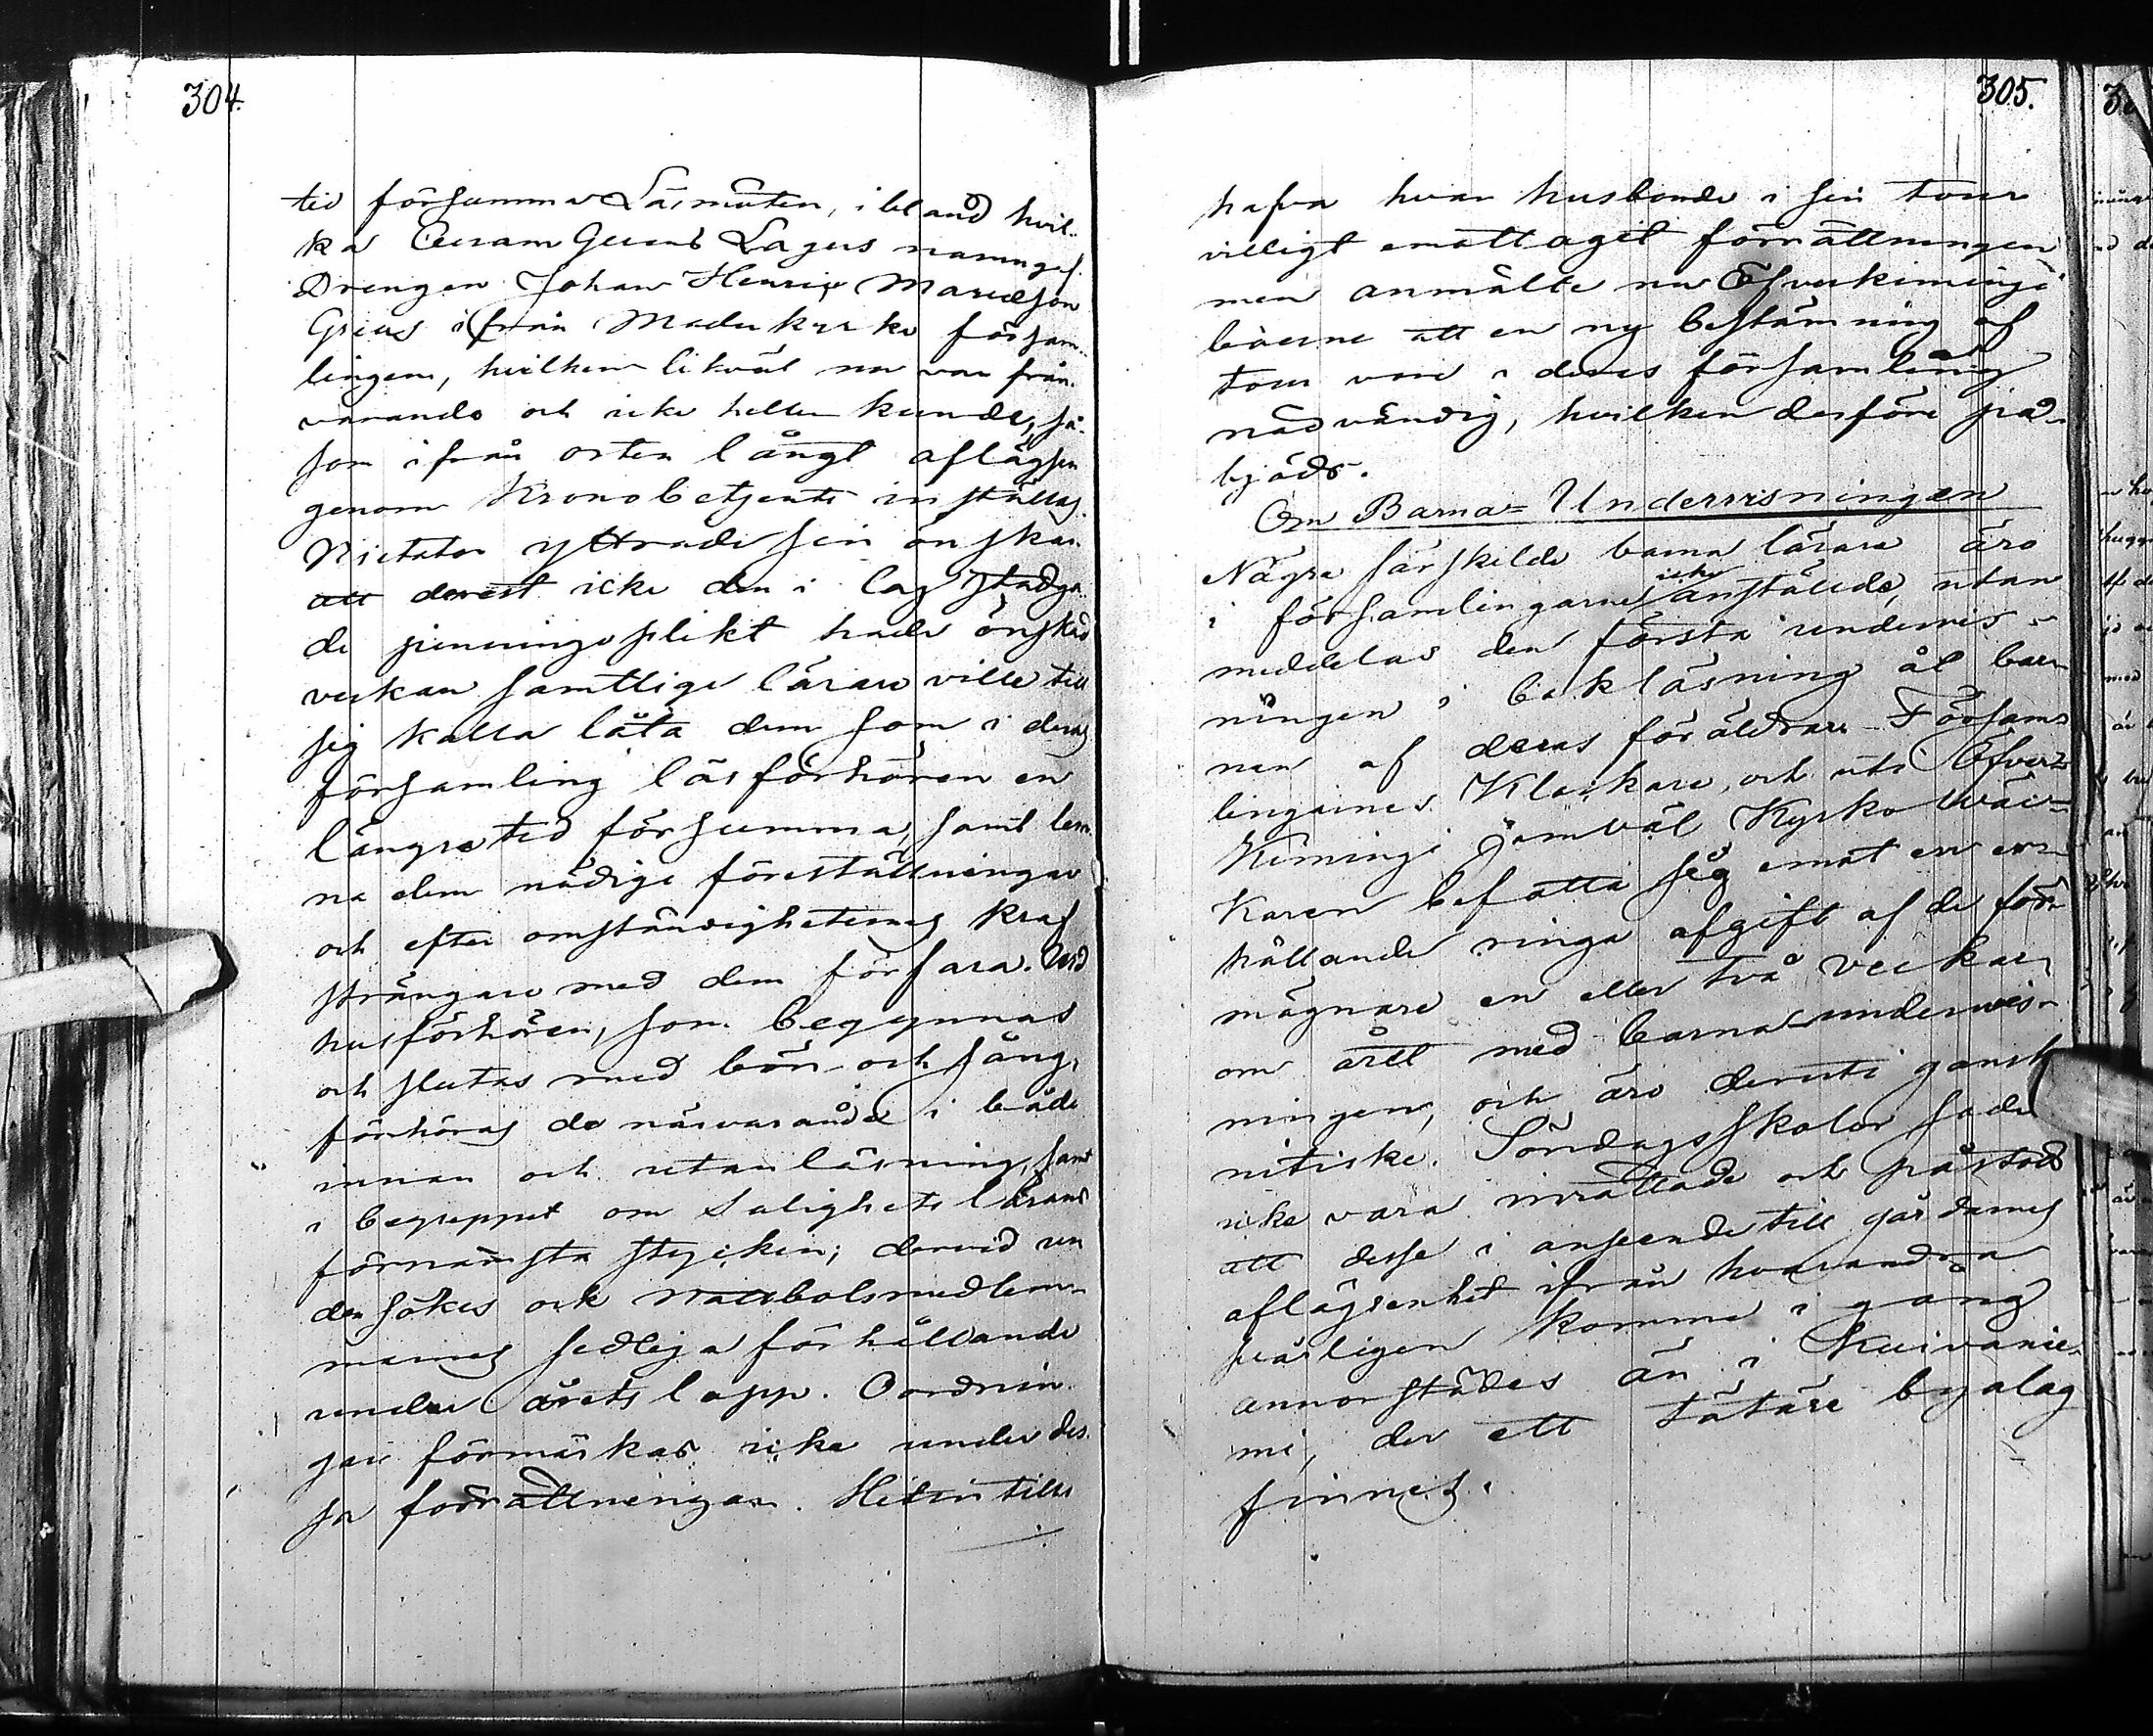 304.
tid försumma Läsmöten, ibland hvil-
ka Lagus namngaf
Drengen Johan Henric
ifrån Maderkyrko försam-
lingen, hvilken likväl nu var från-
varande och icke heller kunde, så-
som ifrån orten långt aflägsen
genom Kronobetjente inställas.
yttrade sin önskan
att derest icke den i lag stadga-
de plikt hade önskad
verkan samtlige lärare ville till
sig kalla låta dem som i deras
församling läsförhören en
längre tid försumma, samt lem-
na dem nödige föreställningar
och efter omständigheternas kraf
strängare med dem förfara. Vid
husförhören, som begynnas
och slutas med bön och sång,
förhöras de närvarande i både
innan och utanläsning, samt
i begreppet om Salighets lärans
förnämsta stycken; dervid un
dersökes ock matbolsmedlem-
marnes sedliga förhållande
under årets lopp. Oordnin
gar förmärkas icke under des
sa förrättningar. Hitintills
305.
hafva hvar husbonde i sin tour
villigt emottagit förrättningen
men anmälte nu Öfverkimingi
boerne att en ny bestämning af
tour vore i deras församling
nödvändig, hvilken derföre på-
bjöds.
Om Barna-Undervisningen
Några särskilde barna lärare äro
icke
i församlingarne anställde, utan
meddelas den första undervis-
ningen i bokläsning åt bar-
nen af deras föräldrar. Försam-
lingarnes Klockare, och uti Öfver-
Kimingi jemväl Kyrkowäk-
karen befatta sig emot en er-
hållande ringa afgift af de för-
mögnare en eller två veckar
om året med barna undervis-
ningen, och äro deruti gansk
nitiske. Söndagsskolor sade
icke vara inrättade och påstods
att desse i anseende till gårdarnes
aflägsenhet ifrån hvarandra
svårligen komma i gång
annorstädes än i Kuivanie-
mi, der ett tätare byalag
finnes.